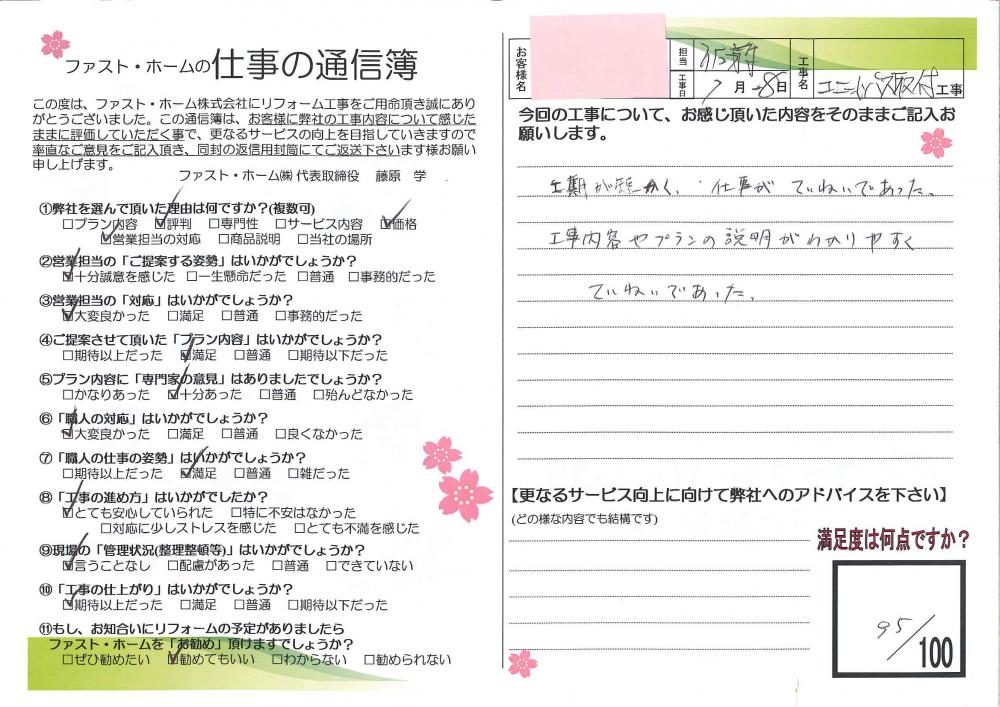 ファスト・ホームの仕事の通信簿
この度は、ファスト・ホーム株式会社にリフォーム工事をご用命頂き誠にあり
がとうございました。この通信簿は、お客様に弊社の工事内容について感じた
ままに評価していただく事で、更なるサービスの向上を目指していきますので
率直なご意見をご記入頂き、同封の返信用封筒にてご返送下さいます様お願い
申し上げます。
ファスト・ホーム㈱ 代表取締役 藤原 学
①弊社を選んで頂いた理由は何ですか?(複数可)
□プラン内容 ☑評判 □専門性 □サービス内容 ☑価格
☑営業担当の対応 □商品説明 □当社の場所
②営業担当の「ご提案する姿勢」はいかがでしょうか?
☑十分誠意を感じた □一生懸命だった □普通 □事務的だった
③営業担当の「対応」はいかがでしょうか?
☑大変良かった □満足 □普通 □事務的だった
④ご提案させて頂いた「プラン内容」はいかがでしょうか?
□期待以上だった ☑満足 □普通 □期待以下だった
⑤プラン内容に「専門家の意見」はありましたでしょうか?
□かなりあった ☑十分あった □普通 □殆んどなかった
⑥「職人の対応」はいかがでしょうか?
☑大変良かった □満足 □普通 □良くなかった
⑦「職人の仕事の姿勢」はいかがでしょうか?
□期待以上だった ☑満足 □普通 □雑だった
⑧「工事の進め方」はいかがでしたか?
☑とても安心していられた □特に不安はなかった
□対応に少しストレスを感じた □とても不満を感じた
⑨現場の「管理状況(整理整頓等)」はいかがでしょうか?
☑言うことなし □配慮があった □普通 □できていない
⑩「工事の仕上がり」はいかがでしょうか?
☑期待以上だった □満足 □普通 □期待以下だった
⑪もし、お知合いにリフォームの予定がありましたら
ファスト・ホームを「お勧め」頂けますでしょうか?
□ぜひ勧めたい ☑勧めてもいい □わからない □勧められない
お客様名
担当
工事日 7月 8日
工事名 取付工事
今回の工事について、お感じ頂いた内容をそのままご記入お
願いします。
工期が短かく、仕事がていねいであった。
工事内容やプランの説明がわかりやすく
ていねいであった。
【更なるサービス向上に向けて弊社へのアドバイスを下さい】
(どの様な内容でも結構です)
満足度は何点ですか?
95/100